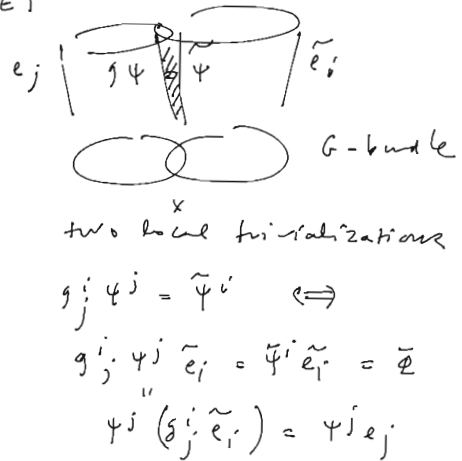 e_j g ψ ψ̃ ẽ_i
G-bundle
x
two local trivializations
g^i_j ψ^j = ψ̃^i ⟺
g^i_j ψ^j ẽ_i = ψ̃^i ẽ_i = Φ̄
ψ^j (g^i_j ẽ_i) = ψ^j e_j